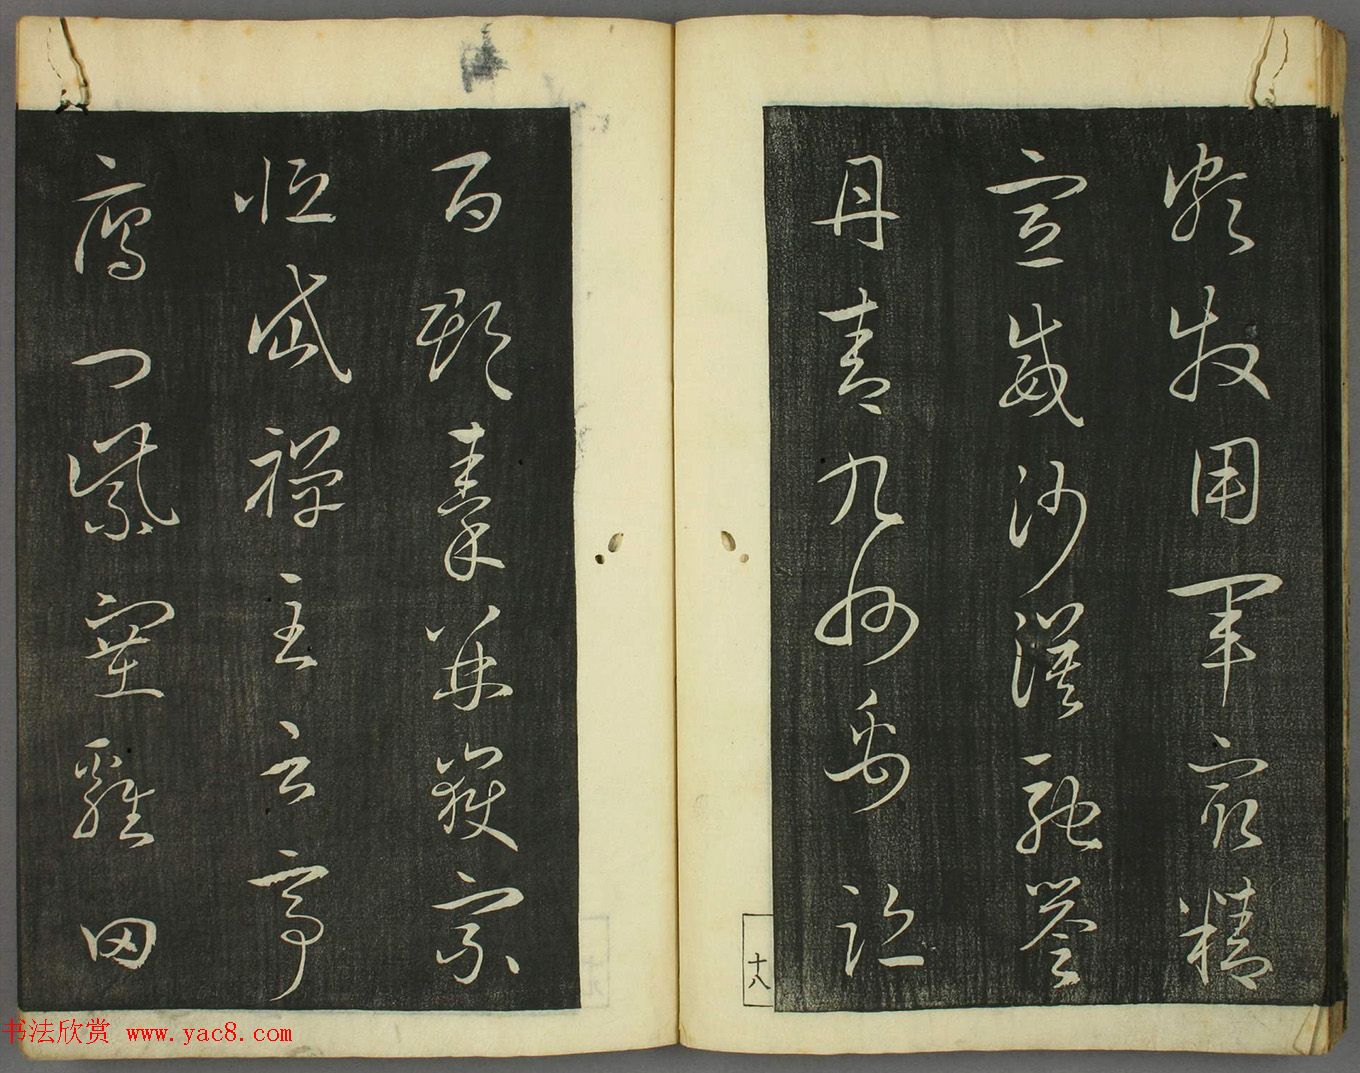 頗牧用軍最精
宣威沙漠馳譽
丹青九州禹跡
十八
百郡秦并嶽宗
恒岱禪主云亭
雁門紫塞雞田
书法欣赏 www.yac8.com